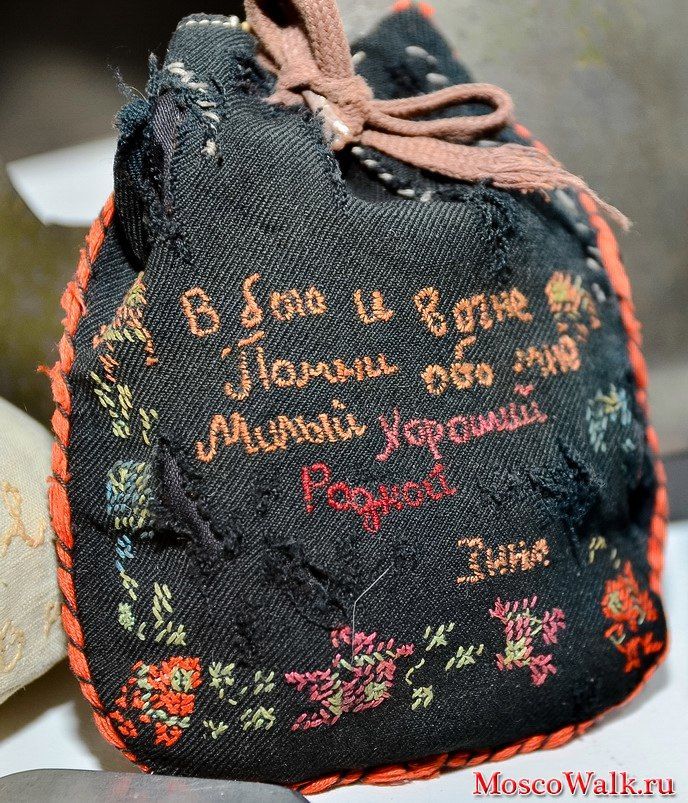 В бою и в огне
Помни обо мне
Милый Хороший
Родной
Зина
MoscoWalk.ru